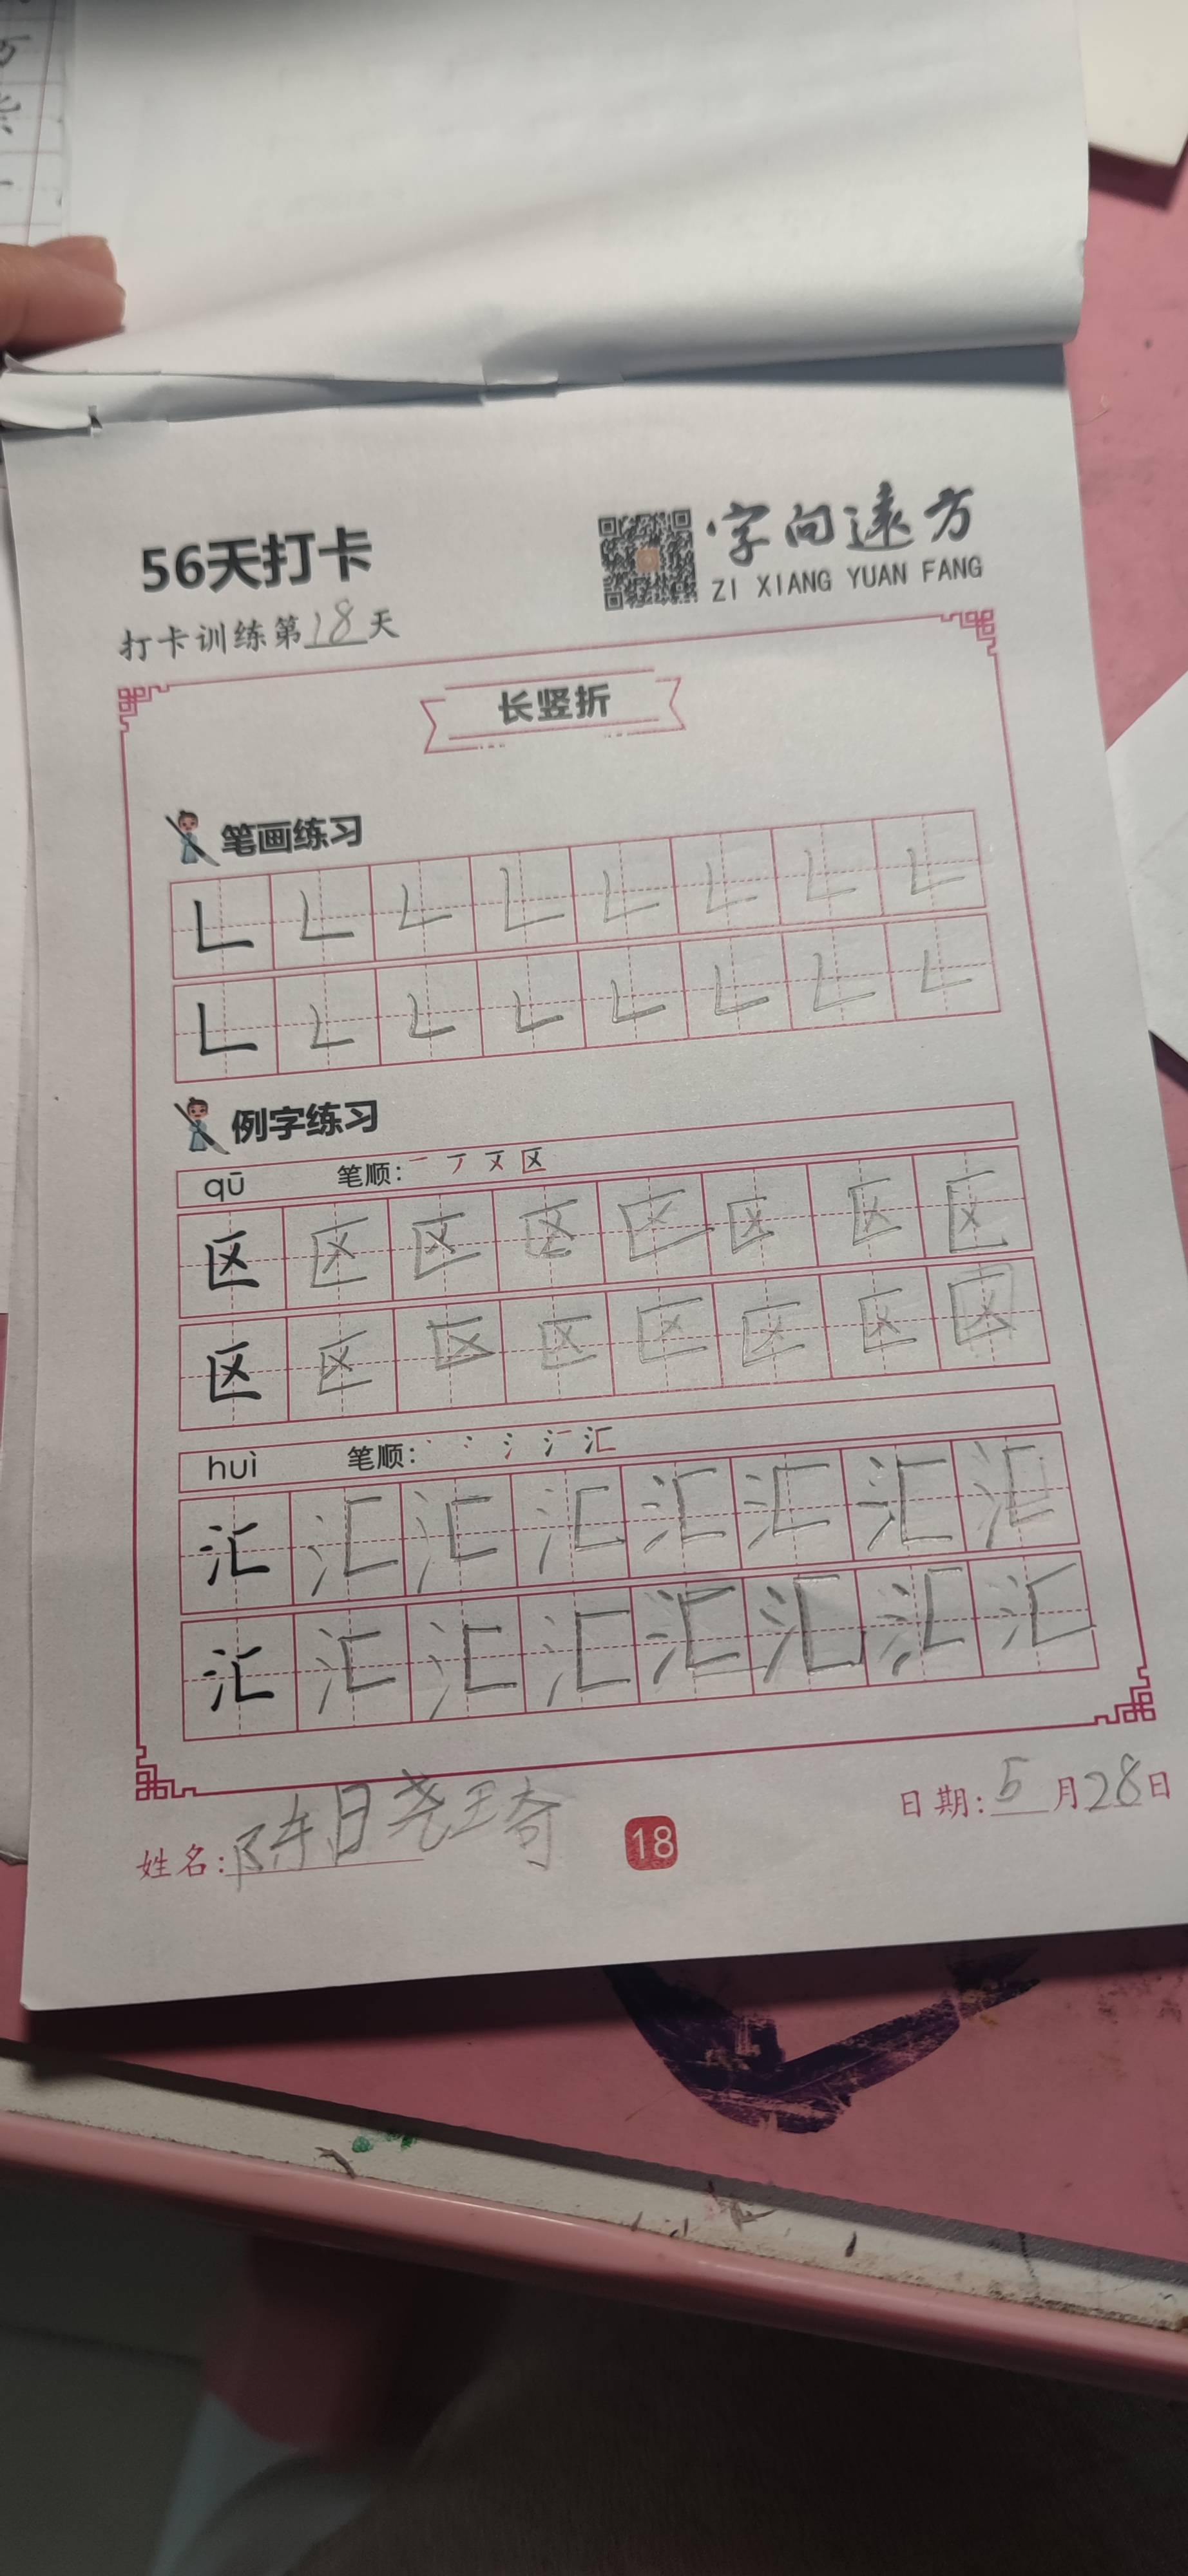 56天打卡
字向远方
ZI XIANG YUAN FANG
打卡训练第18天
长竖折
笔画练习
例字练习
qū 笔顺: 一 丆 㐅 区
区 区 区 区 区 区 区 区
区 区 区 区 区 区 区 区
huì 笔顺: 丶 冫 氵 汇
汇 汇 汇 汇 汇 汇 汇 汇
汇 汇 汇 汇 汇 汇 汇 汇
姓名:陈曦琦
18
日期:5月28日